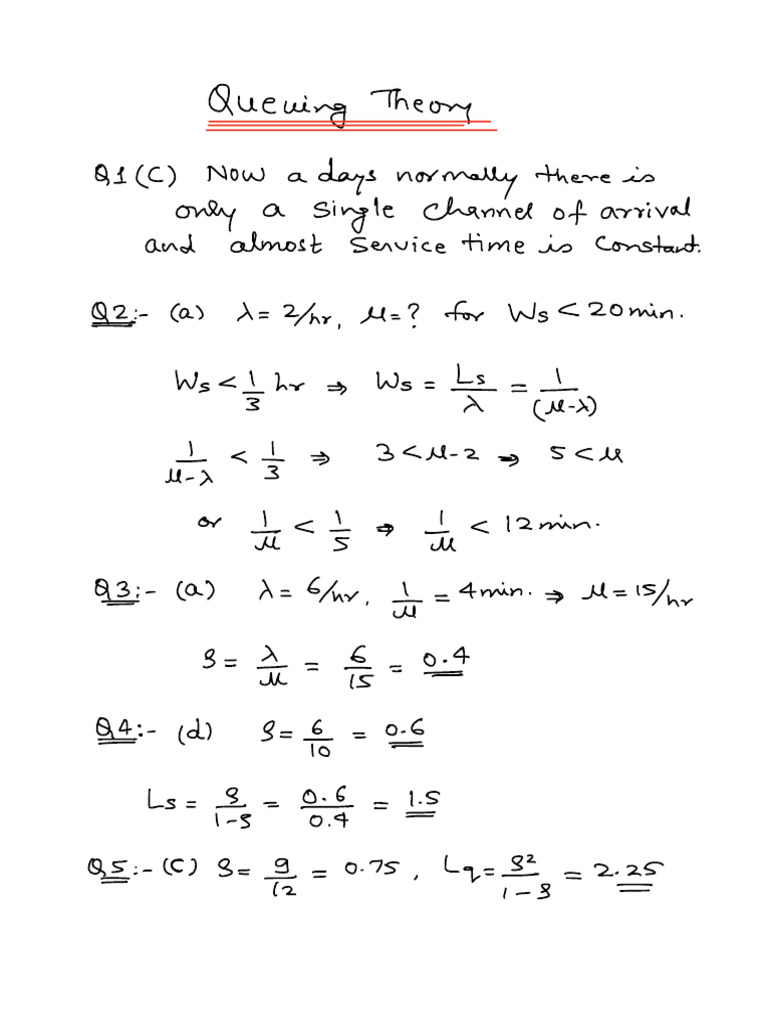 Queuing Theory
Q1(C) Now a days normally there is
only a single channel of arrival
and almost service time is constant.
Q2:- (a) λ = 2/hr, μ = ? for Ws < 20 min.
Ws < 1/3 hr ⇒ Ws = Ls/λ = 1/(μ-λ)
1/(μ-λ) < 1/3 ⇒ 3 < μ-2 ⇒ 5 < μ
or 1/μ < 1/5 ⇒ 1/μ < 12 min.
Q3:- (a) λ = 6/hr, 1/μ = 4 min. ⇒ μ = 15/hr
ρ = λ/μ = 6/15 = 0.4
Q4:- (d) ρ = 6/10 = 0.6
Ls = ρ/(1-ρ) = 0.6/0.4 = 1.5
Q5:- (C) ρ = 9/12 = 0.75, Lq = ρ²/(1-ρ) = 2.25